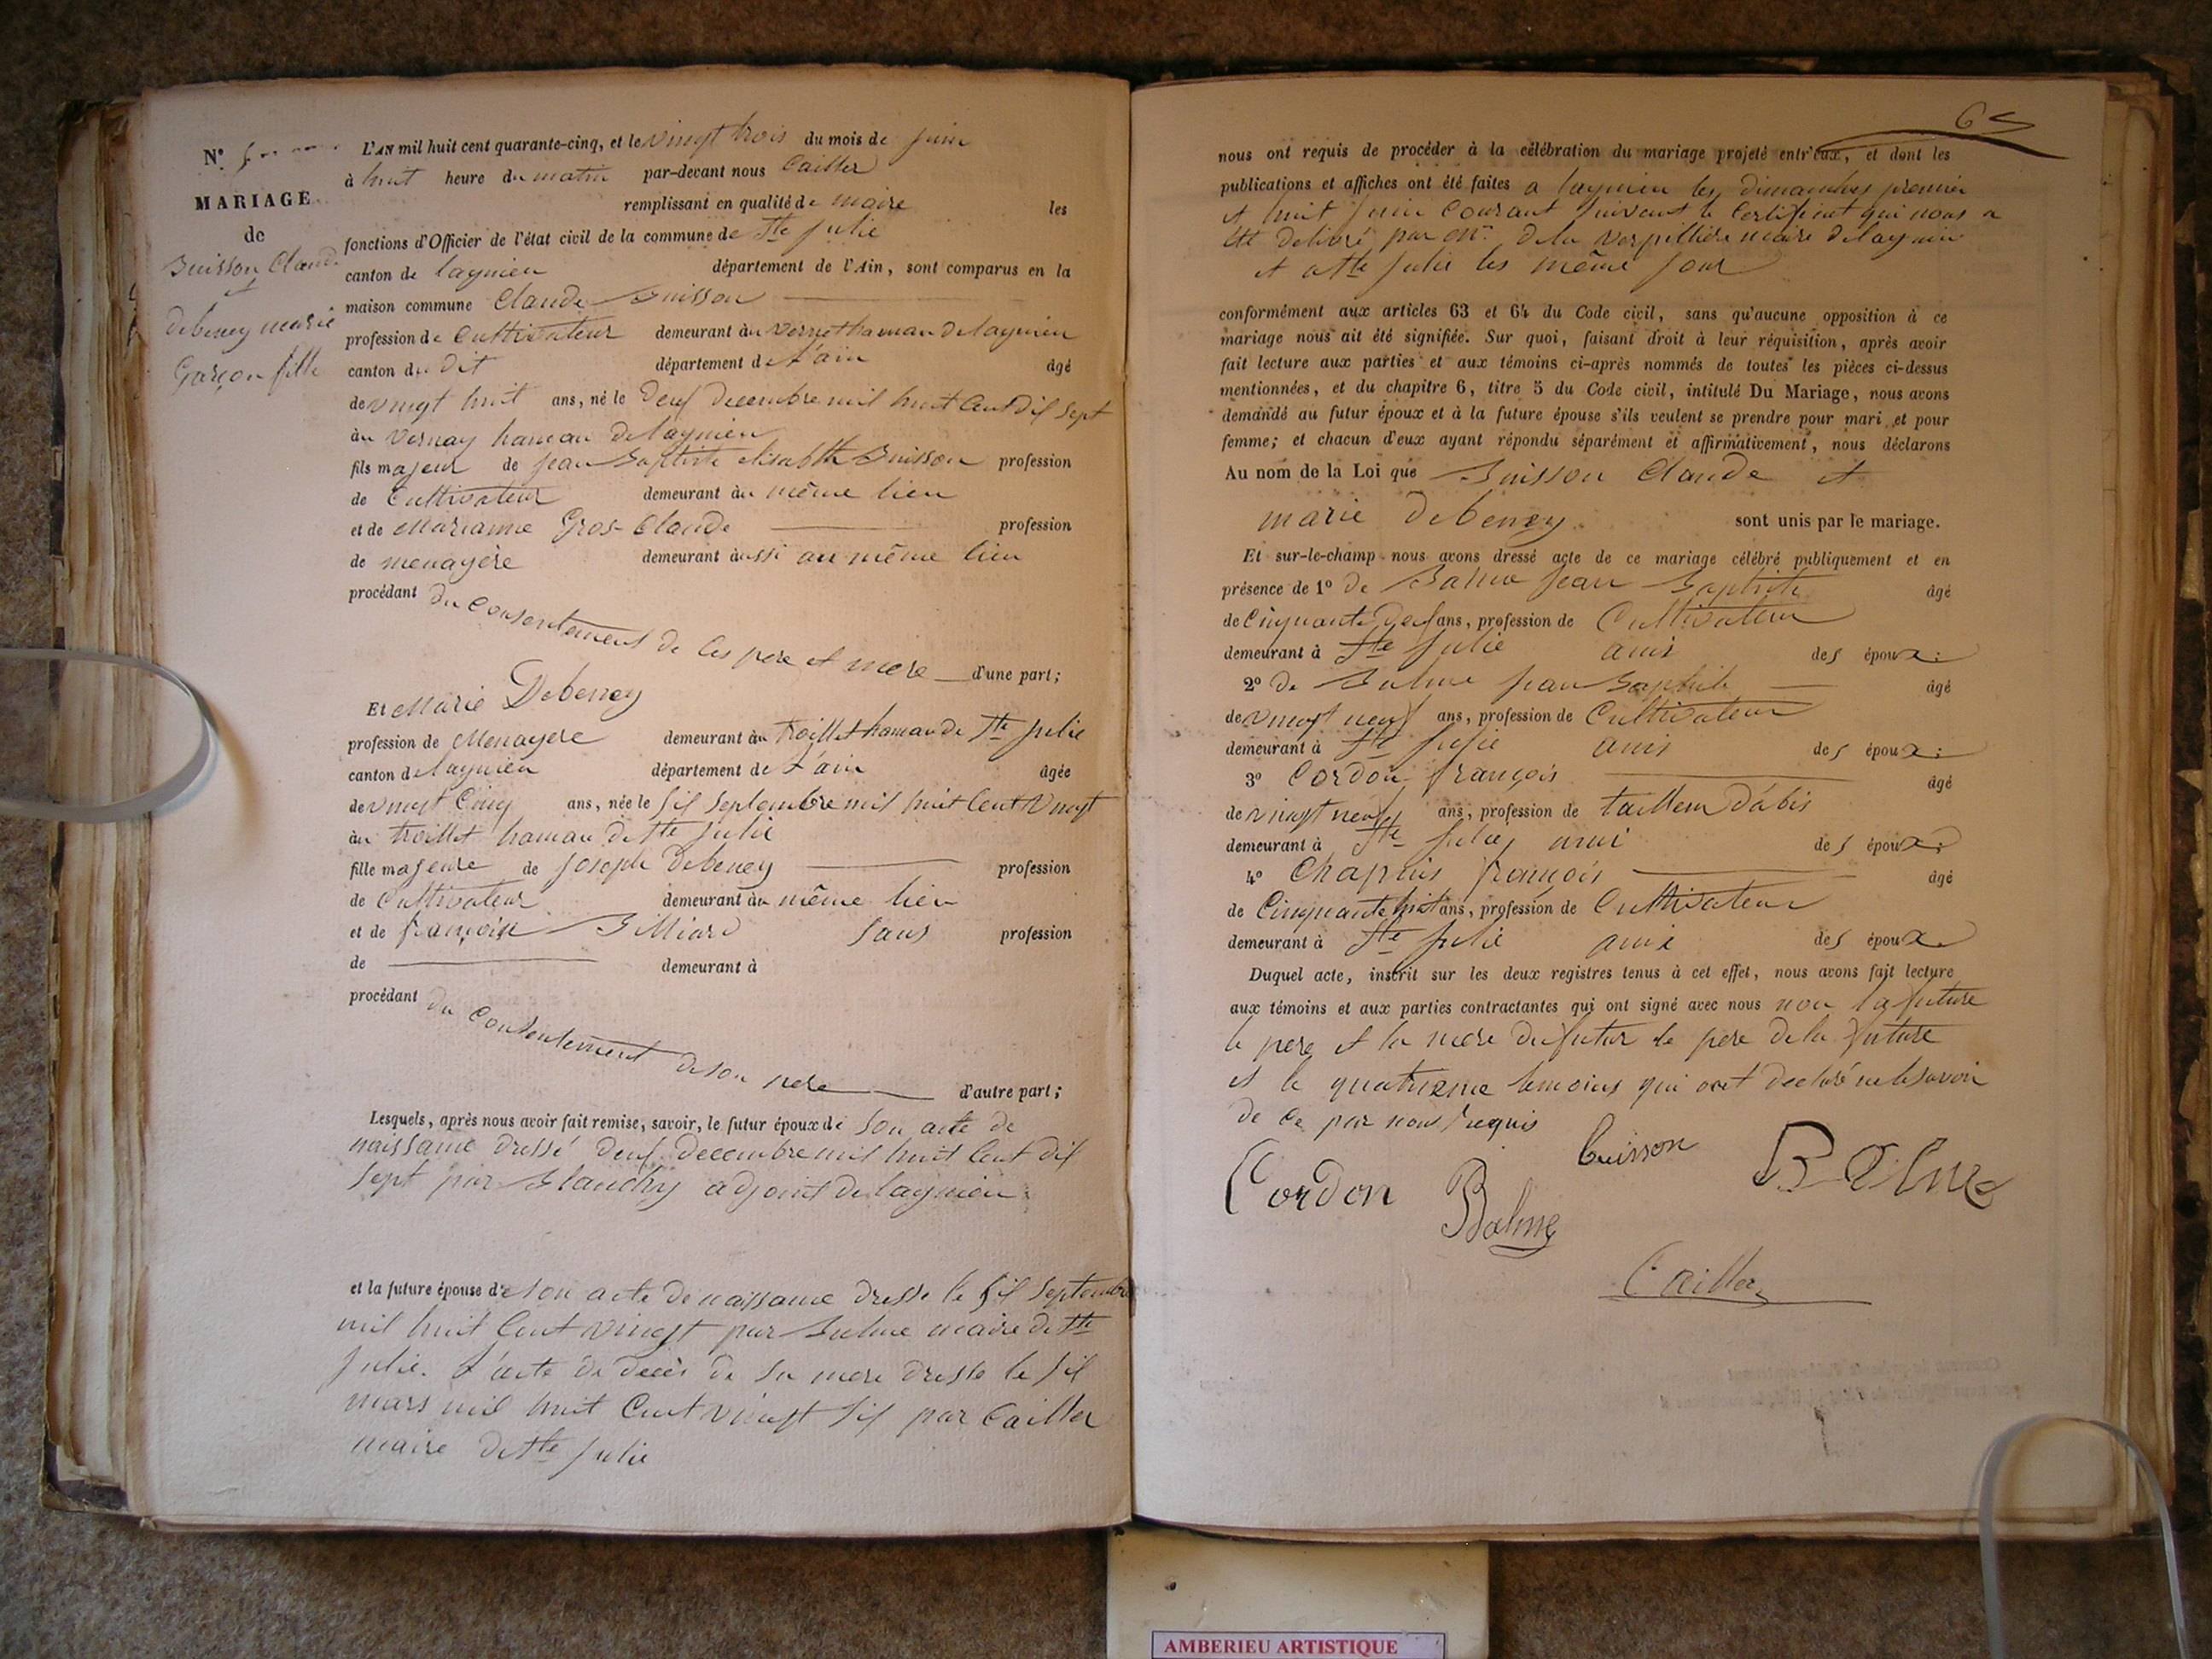 N° 5
MARIAGE
de
Buisson Claude
et
debeney marie
Garçon fille
L'AN mil huit cent quarante-cinq, et le vingt trois du mois de juin
à huit heure du matin par-devant nous Cailler
remplissant en qualité de maire les
fonctions d'Officier de l'état civil de la commune de Ste julie
canton de lagnieu département de l'Ain, sont comparus en la
maison commune Claude Buisson
profession de Cultivateur demeurant au vernet hamau de lagnieu
canton du dit département de L'ain âgé
de vingt huit ans, né le deux decembre mil huit Cent dix sept
au vernay hamau de lagnieu
fils majeur de jean Baptiste elisabtth Buisson profession
de Cultivateur demeurant au même lieu
et de Marianne Gros-Claude profession
de menagère demeurant aussi au même lieu
procédant du Consentement de Ces pere et mere d'une part;
Et Marie Debeney
profession de Menagere demeurant au troillet hamau de Ste julie
canton de lagnieu département de L'ain âgée
de vingt Cinq ans, née le six Septembre mil huit Cent vingt
au troillet hamau de Ste julie
fille majeure de joseph debeney profession
de Cultivateur demeurant au même lieu
et de françoise Billiard Sans profession
de demeurant à
procédant du Consentement de son pere d'autre part;
Lesquels, après nous avoir fait remise, savoir, le futur époux de Son acte de
naissance dressé deux decembre mil huit Cent dix
sept par Blanchy adjoint de lagnieu
et la future épouse de son acte de naissance dresse le six Septembre
mil huit Cent vingt par Balme maire de Ste
julie. L'acte de décès de sa mere dresse le six
mars mil huit Cent vingt six par Cailler
maire de Ste julie
65
nous ont requis de procéder à la célébration du mariage projeté entr'eux, et dont les
publications et affiches ont été faites a lagnieu les dimanches premier
et huit juin Courant Suivant le Certificat qui nous a
été delivré par Mr dela verpillière maire de lagnieu
et a Ste julie les même jour
conformément aux articles 63 et 64 du Code civil, sans qu'aucune opposition à ce
mariage nous ait été signifiée. Sur quoi, faisant droit à leur réquisition, après avoir
fait lecture aux parties et aux témoins ci-après nommés de toutes les pièces ci-dessus
mentionnées, et du chapitre 6, titre 5 du Code civil, intitulé Du Mariage, nous avons
demandé au futur époux et à la future épouse s'ils veulent se prendre pour mari et pour
femme; et chacun d'eux ayant répondu séparément et affirmativement, nous déclarons
Au nom de la Loi que Buisson Claude et
marie debeney sont unis par le mariage.
Et sur-le-champ nous avons dressé acte de ce mariage célébré publiquement et en
présence de 1° de Balme jean Baptiste âgé
de Cinquante ans, profession de Cultivateur
demeurant à Ste julie ami des époux:
2° de Balme jean Baptiste âgé
de vingt neuf ans, profession de Cultivateur
demeurant à Ste julie ami des époux:
3° Cordon françois âgé
de vingt neuf ans, profession de tailleur d'abis
demeurant à Ste julie, ami des époux;
4° Chapuis françois âgé
de Cinquante huit ans, profession de Cultivateur
demeurant à Ste julie ami des époux
Duquel acte, inscrit sur les deux registres tenus à cet effet, nous avons fait lecture
aux témoins et aux parties contractantes qui ont signé avec nous non la future
le pere et la mere du futur le pere de la future
et le quatrieme temoins qui ont declaré ne le savoir
de Ce par nous requis
Cordon Balme buisson Balme
Cailler
AMBERIEU ARTISTIQUE